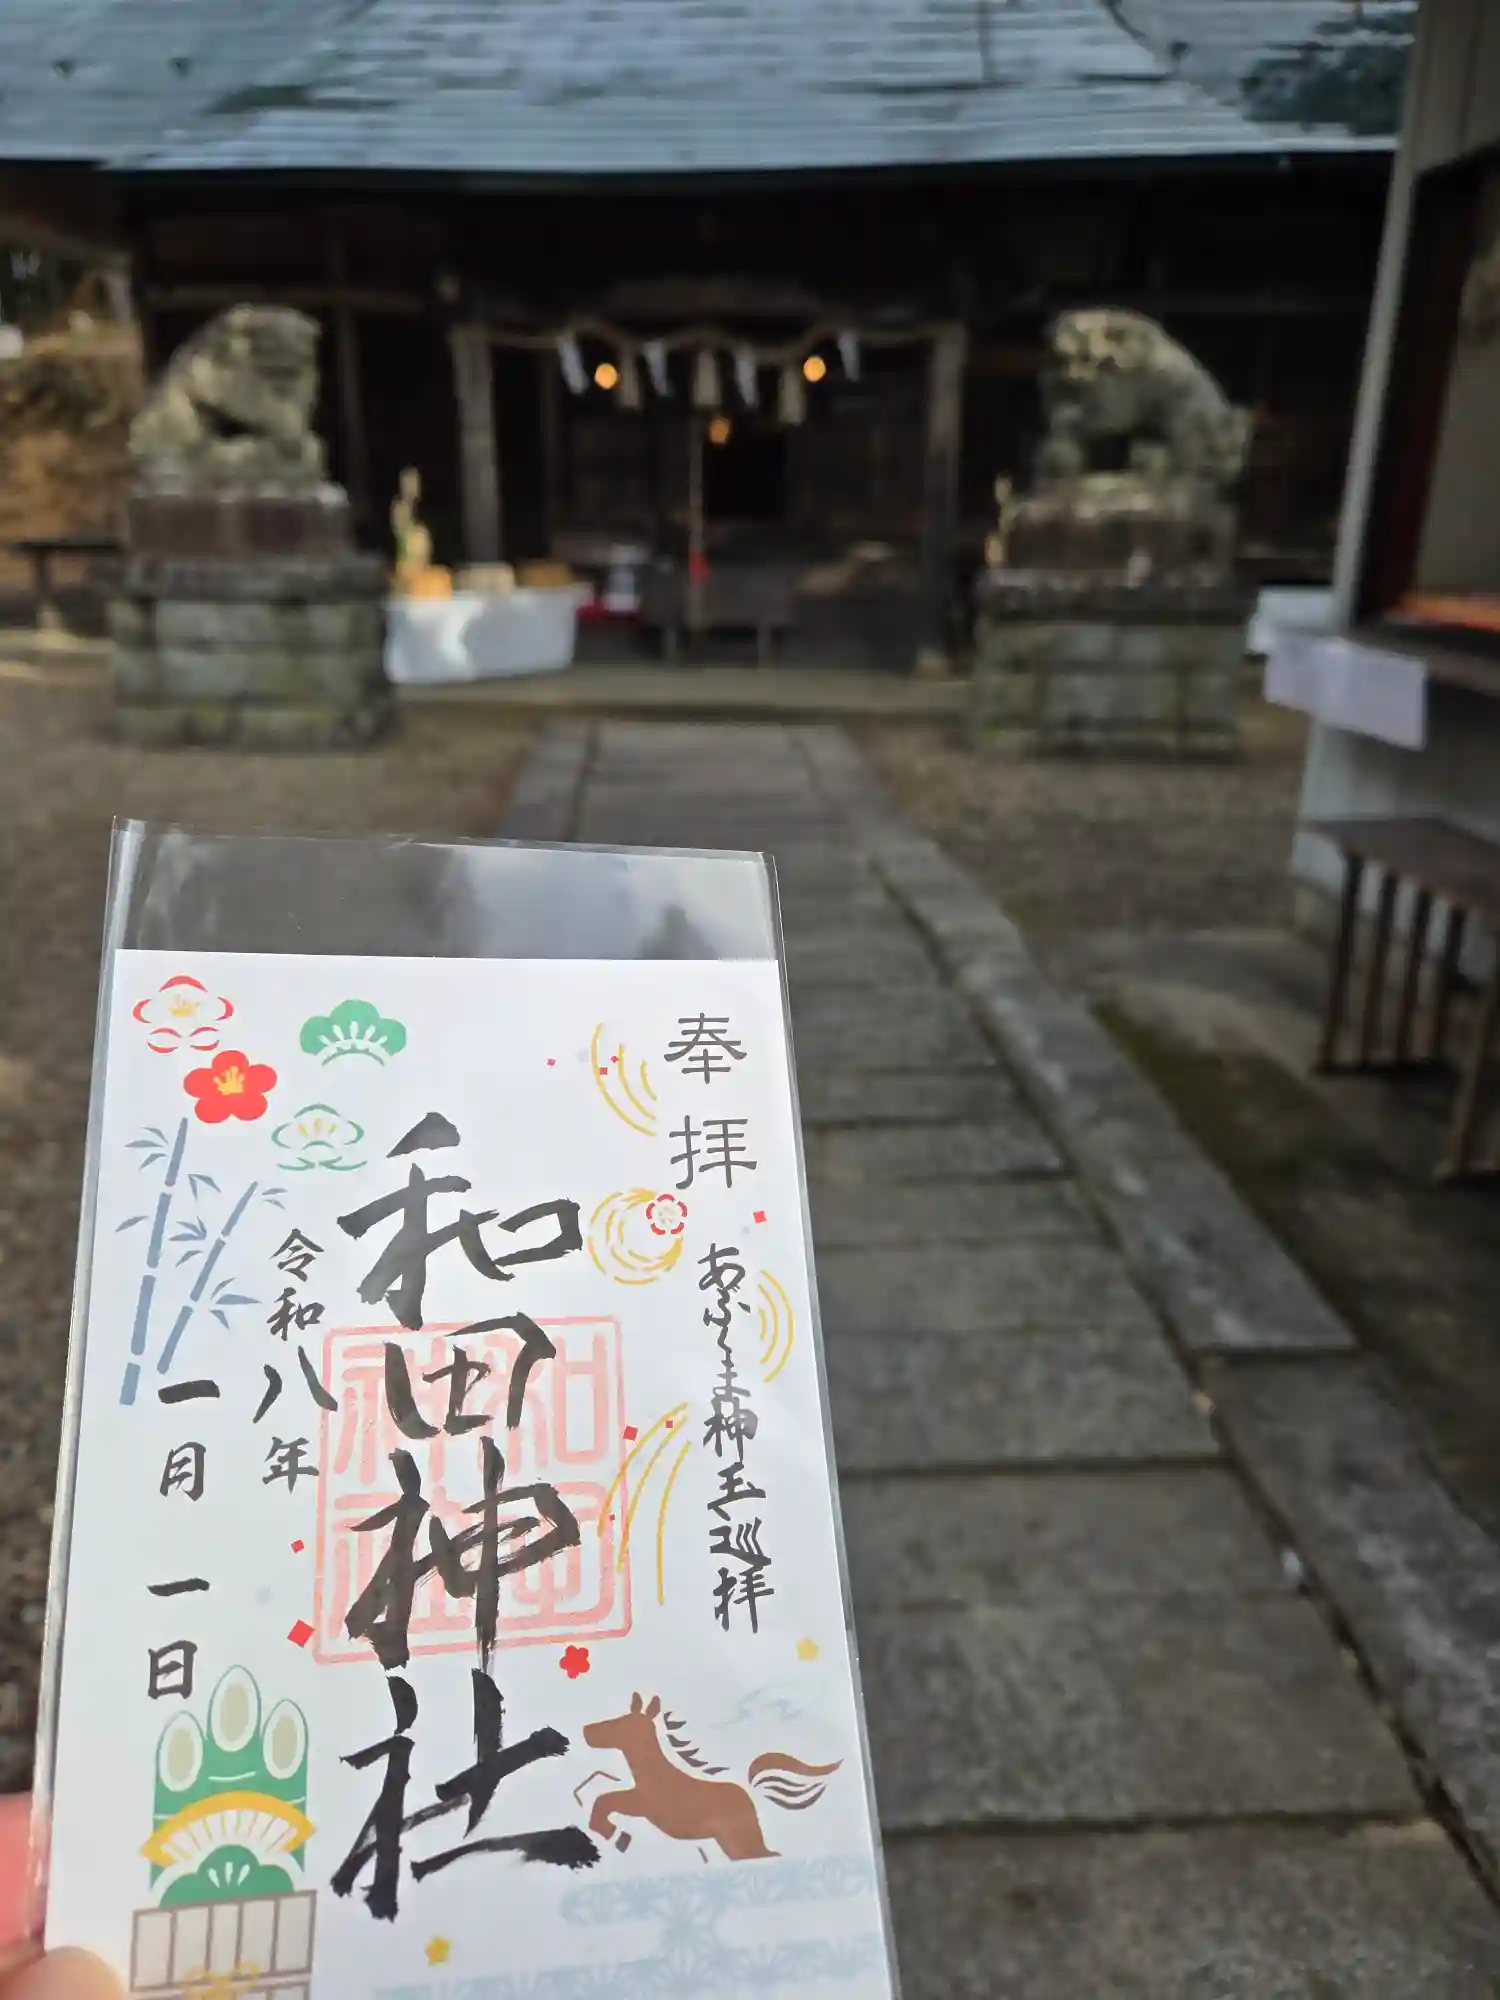 奉拝
あぶくま神玉巡拝
和田神社
和田
神社
令和八年
一月一日